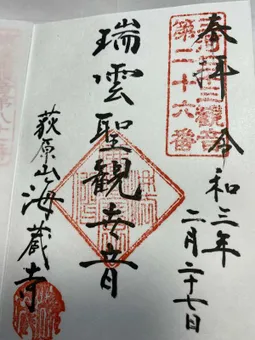 奉拝
令和三年
二月二十七日
第二十六番
瑞雲聖観世音
萩原山海蔵寺